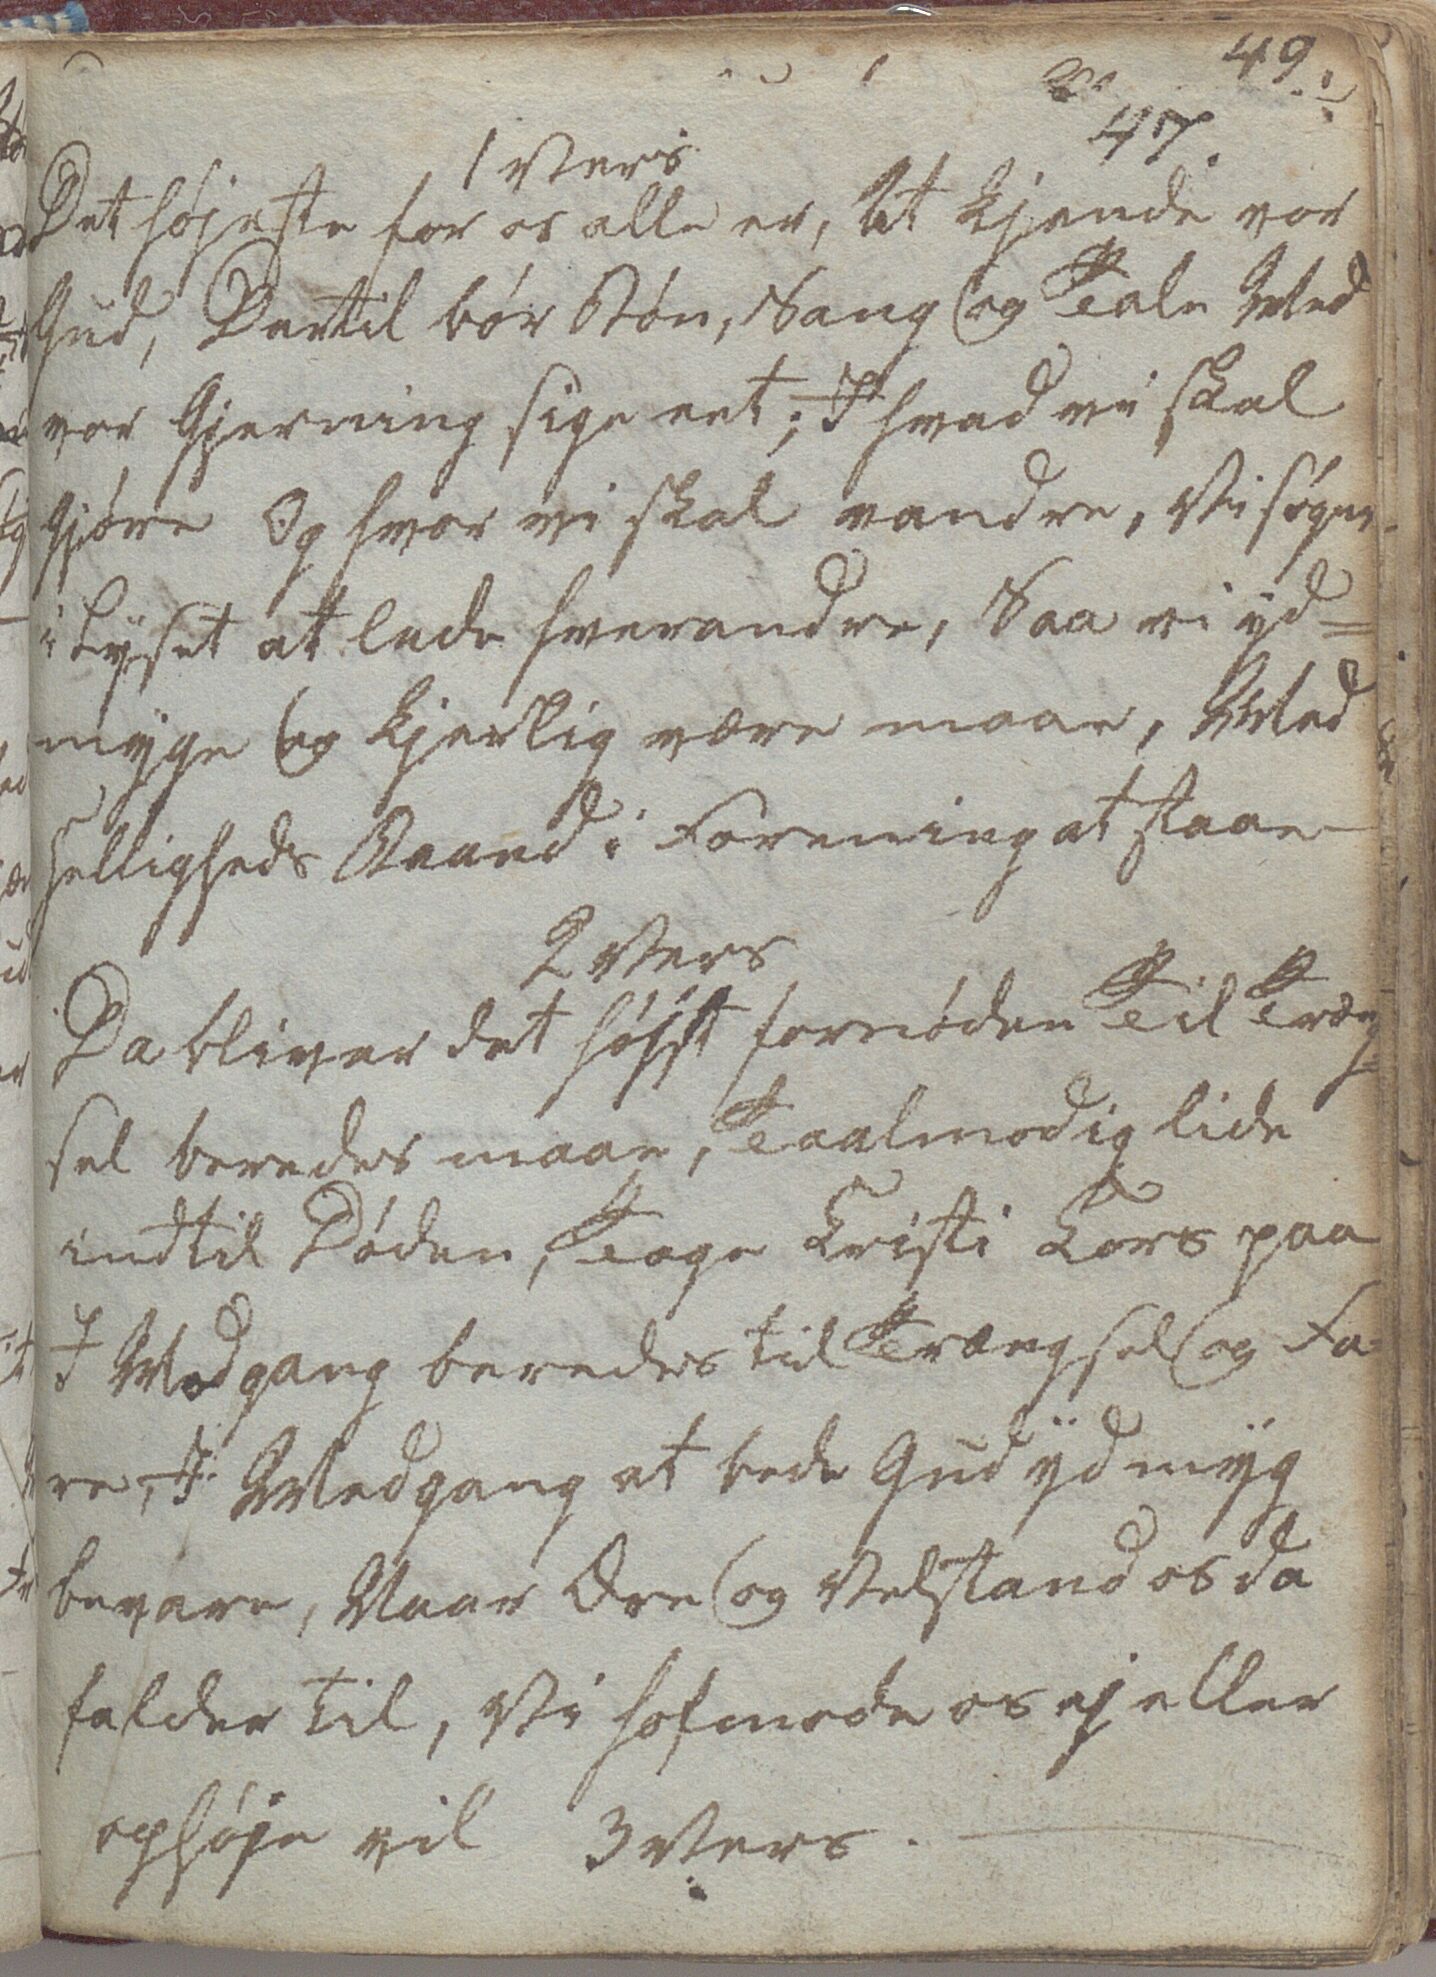 49.
47.
1 Vers
Det højeste for os alle er, At kjende vor
Gud, Dertil bør Bøn, Sang og Tale Med
vor Gjerning sige eet; I hvad vi skal
gjøre Og hvor vi skal vandre, Vi søger
i Lyset at lede hverandre, Saa vi yd=
myge og kjerlig være maae, Med
Helligheds Baand i Forening at staae
2 Vers
Da bliver det højst fornøden Til Træng
sel beredes maae, Taalmodig lide
indtil Døden, Tage Kristi Kors paa
I Medgang beredes til Trængsel og Fa
re, I Medgang at bede Gud ydmyg
bevare, Naar Ære og Velstand os da
falder til, Vi hofmode os ej eller
ophøje vil 3 Vers.